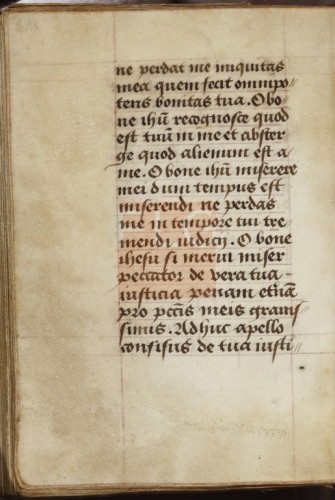 ne perdat me iniquitas
mea quem fecit omnipo
tens bonitas tua. O bo
ne ihũ recognosce quod
est tuũ in me et abster
ge quod alienum est a
me. O bone ihũ miserere
mei dum tempus est
miserendi ne perdas
me in tempore tui tre
mendi iudicij. O bone
ihesu si merui miser
peccator de vera tua
iusticia penam eternã
pro pctĩs meis grauis
simis. Adhuc apello
confisus de tua iusti